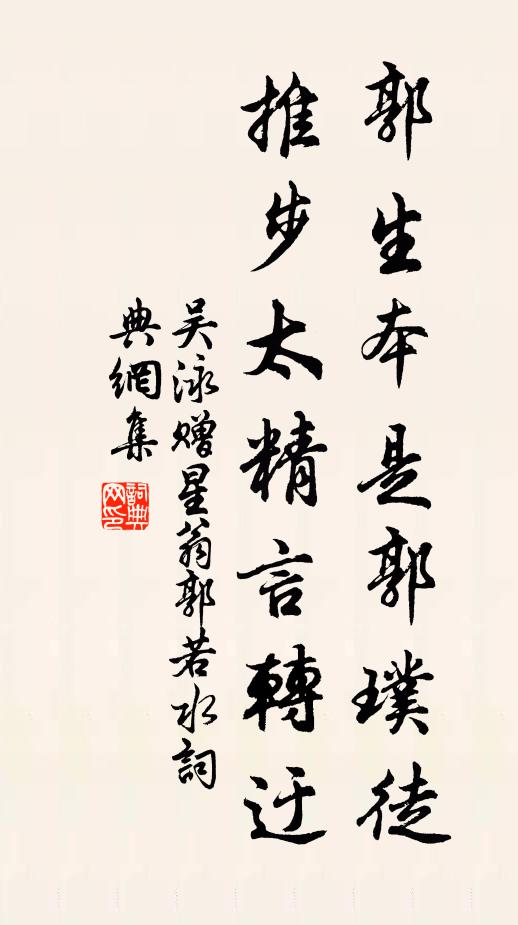 郭生本是郭璞徒
推步太精言轉迂
吴泳赠星翁郭若水詞
典網集
詞典网印